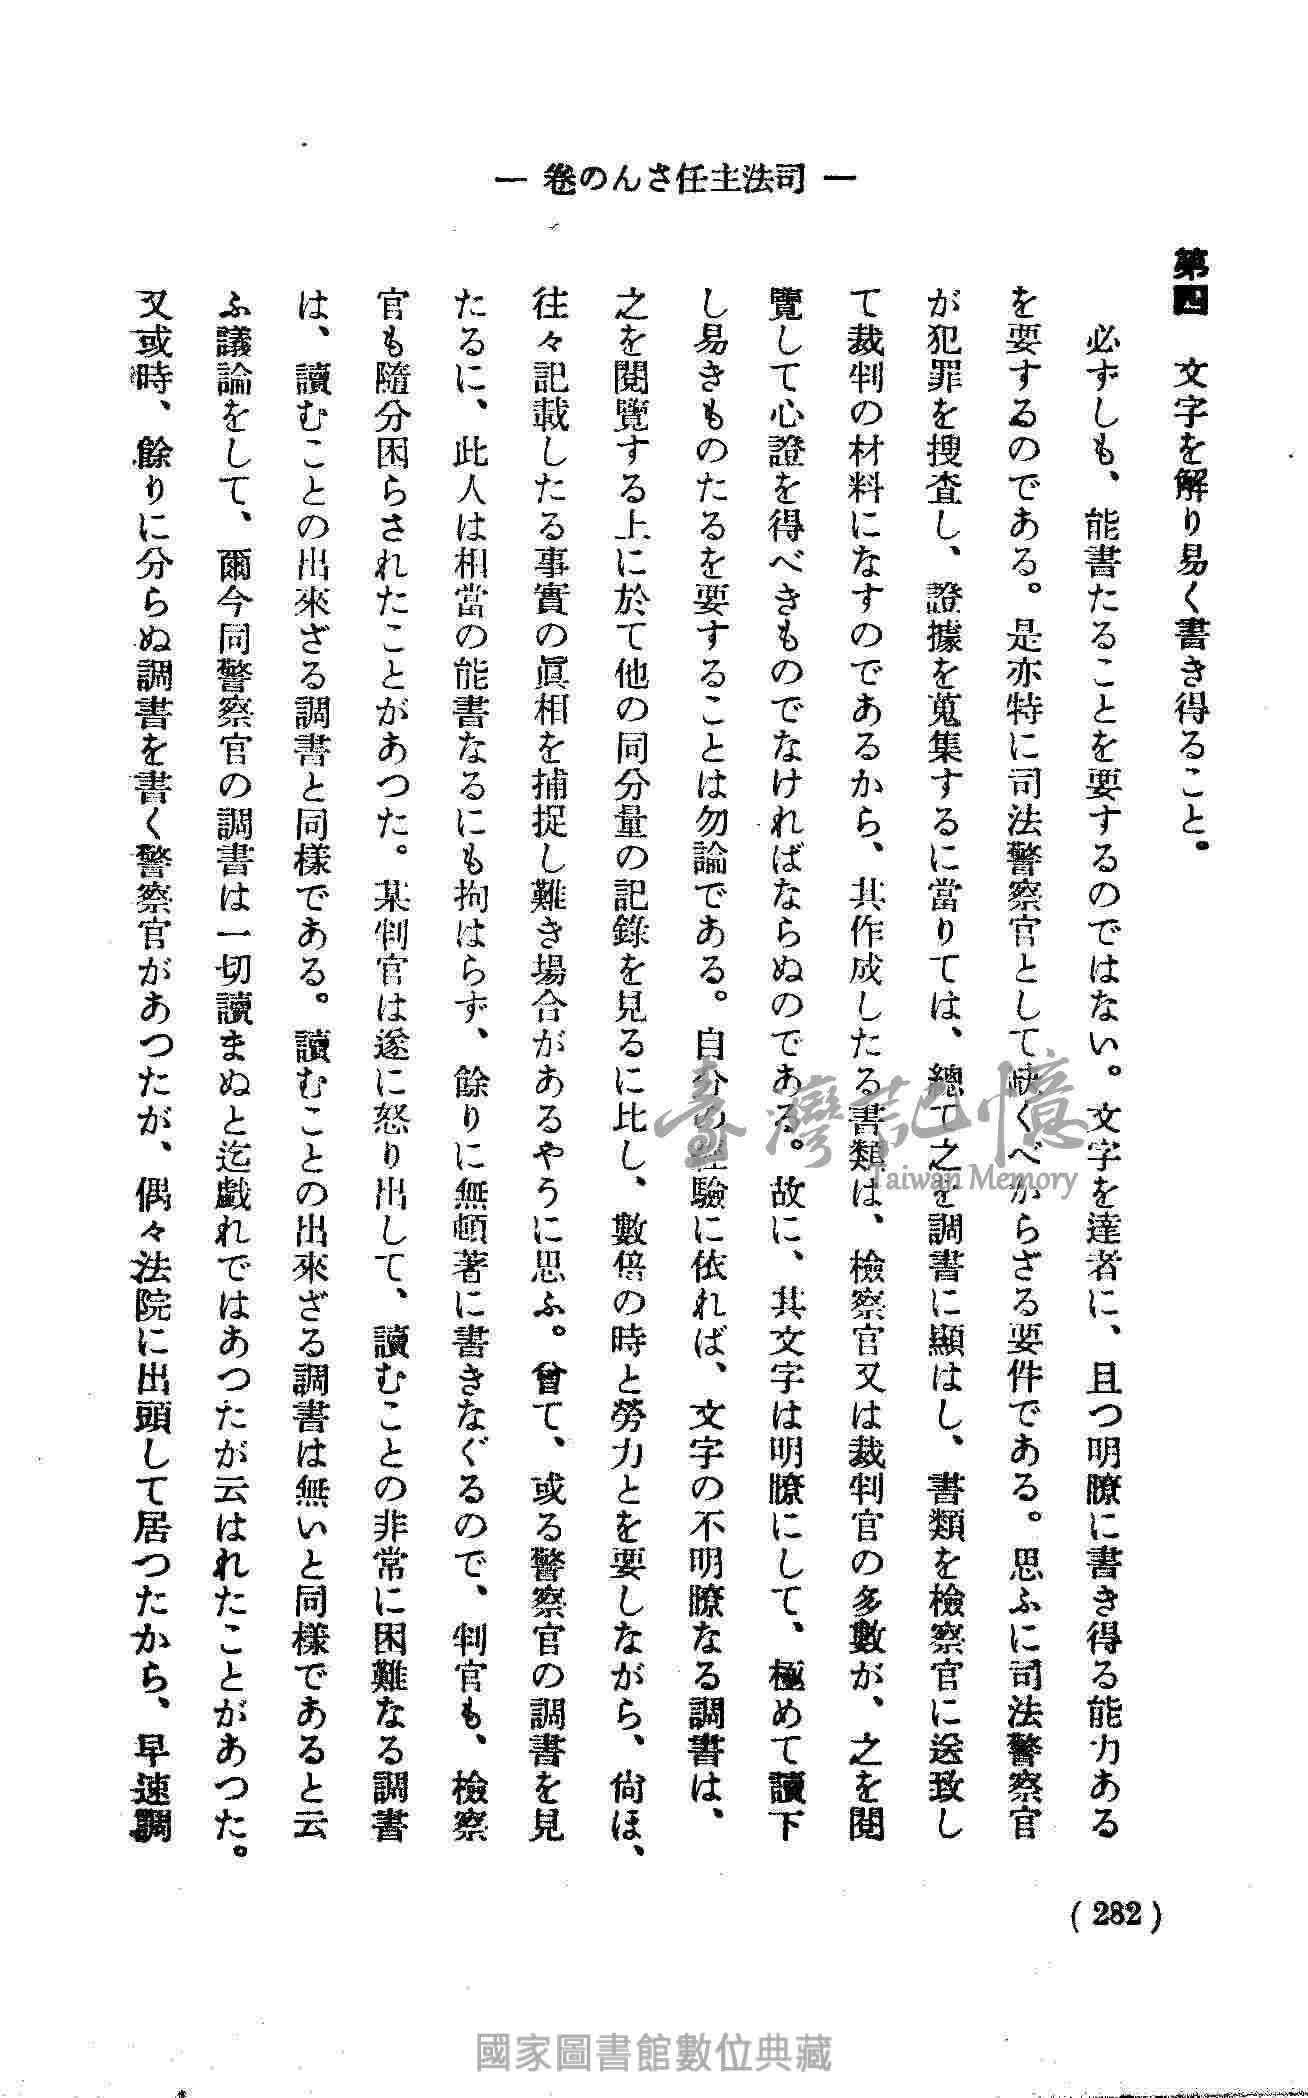 ― 司法主任さんの卷 ―
第四　文字を解り易く書き得ること。
必ずしも、能書たることを要するのではない。文字を達者に、且つ明瞭に書き得る能力ある
を要するのである。是亦特に司法警察官として缺くべからざる要件である。思ふに司法警察官
が犯罪を搜査し、證據を蒐集するに當りては、總て之を調書に顯はし、書類を檢察官に送致し
て裁判の材料になすのであるから、其作成したる書類は、檢察官又は裁判官の多數が、之を閱
覽して心證を得べきものでなければならぬのである。故に、其文字は明瞭にして、極めて讀下
し易きものたるを要することは勿論である。自分の經驗に依れば、文字の不明瞭なる調書は、
之を閱覽する上に於て他の同分量の記錄を見るに比し、數倍の時と勞力とを要しながら、尙ほ、
往々記載したる事實の眞相を捕捉し難き場合があるやうに思ふ。曾て、或る警察官の調書を見
たるに、此人は相當の能書なるにも拘はらず、餘りに無頓著に書きなぐるので、判官も、檢察
官も隨分困らされたことがあつた。某判官は遂に怒り出して、讀むことの非常に困難なる調書
は、讀むことの出來ざる調書と同樣である。讀むことの出來ざる調書は無いと同樣であると云
ふ議論をして、爾今同警察官の調書は一切讀まぬと迄戲れではあつたが云はれたことがあつた。
又或時、餘りに分らぬ調書を書く警察官があつたが、偶々法院に出頭して居つたから、早速調
(282)
臺灣記憶
Taiwan Memory
國家圖書館數位典藏